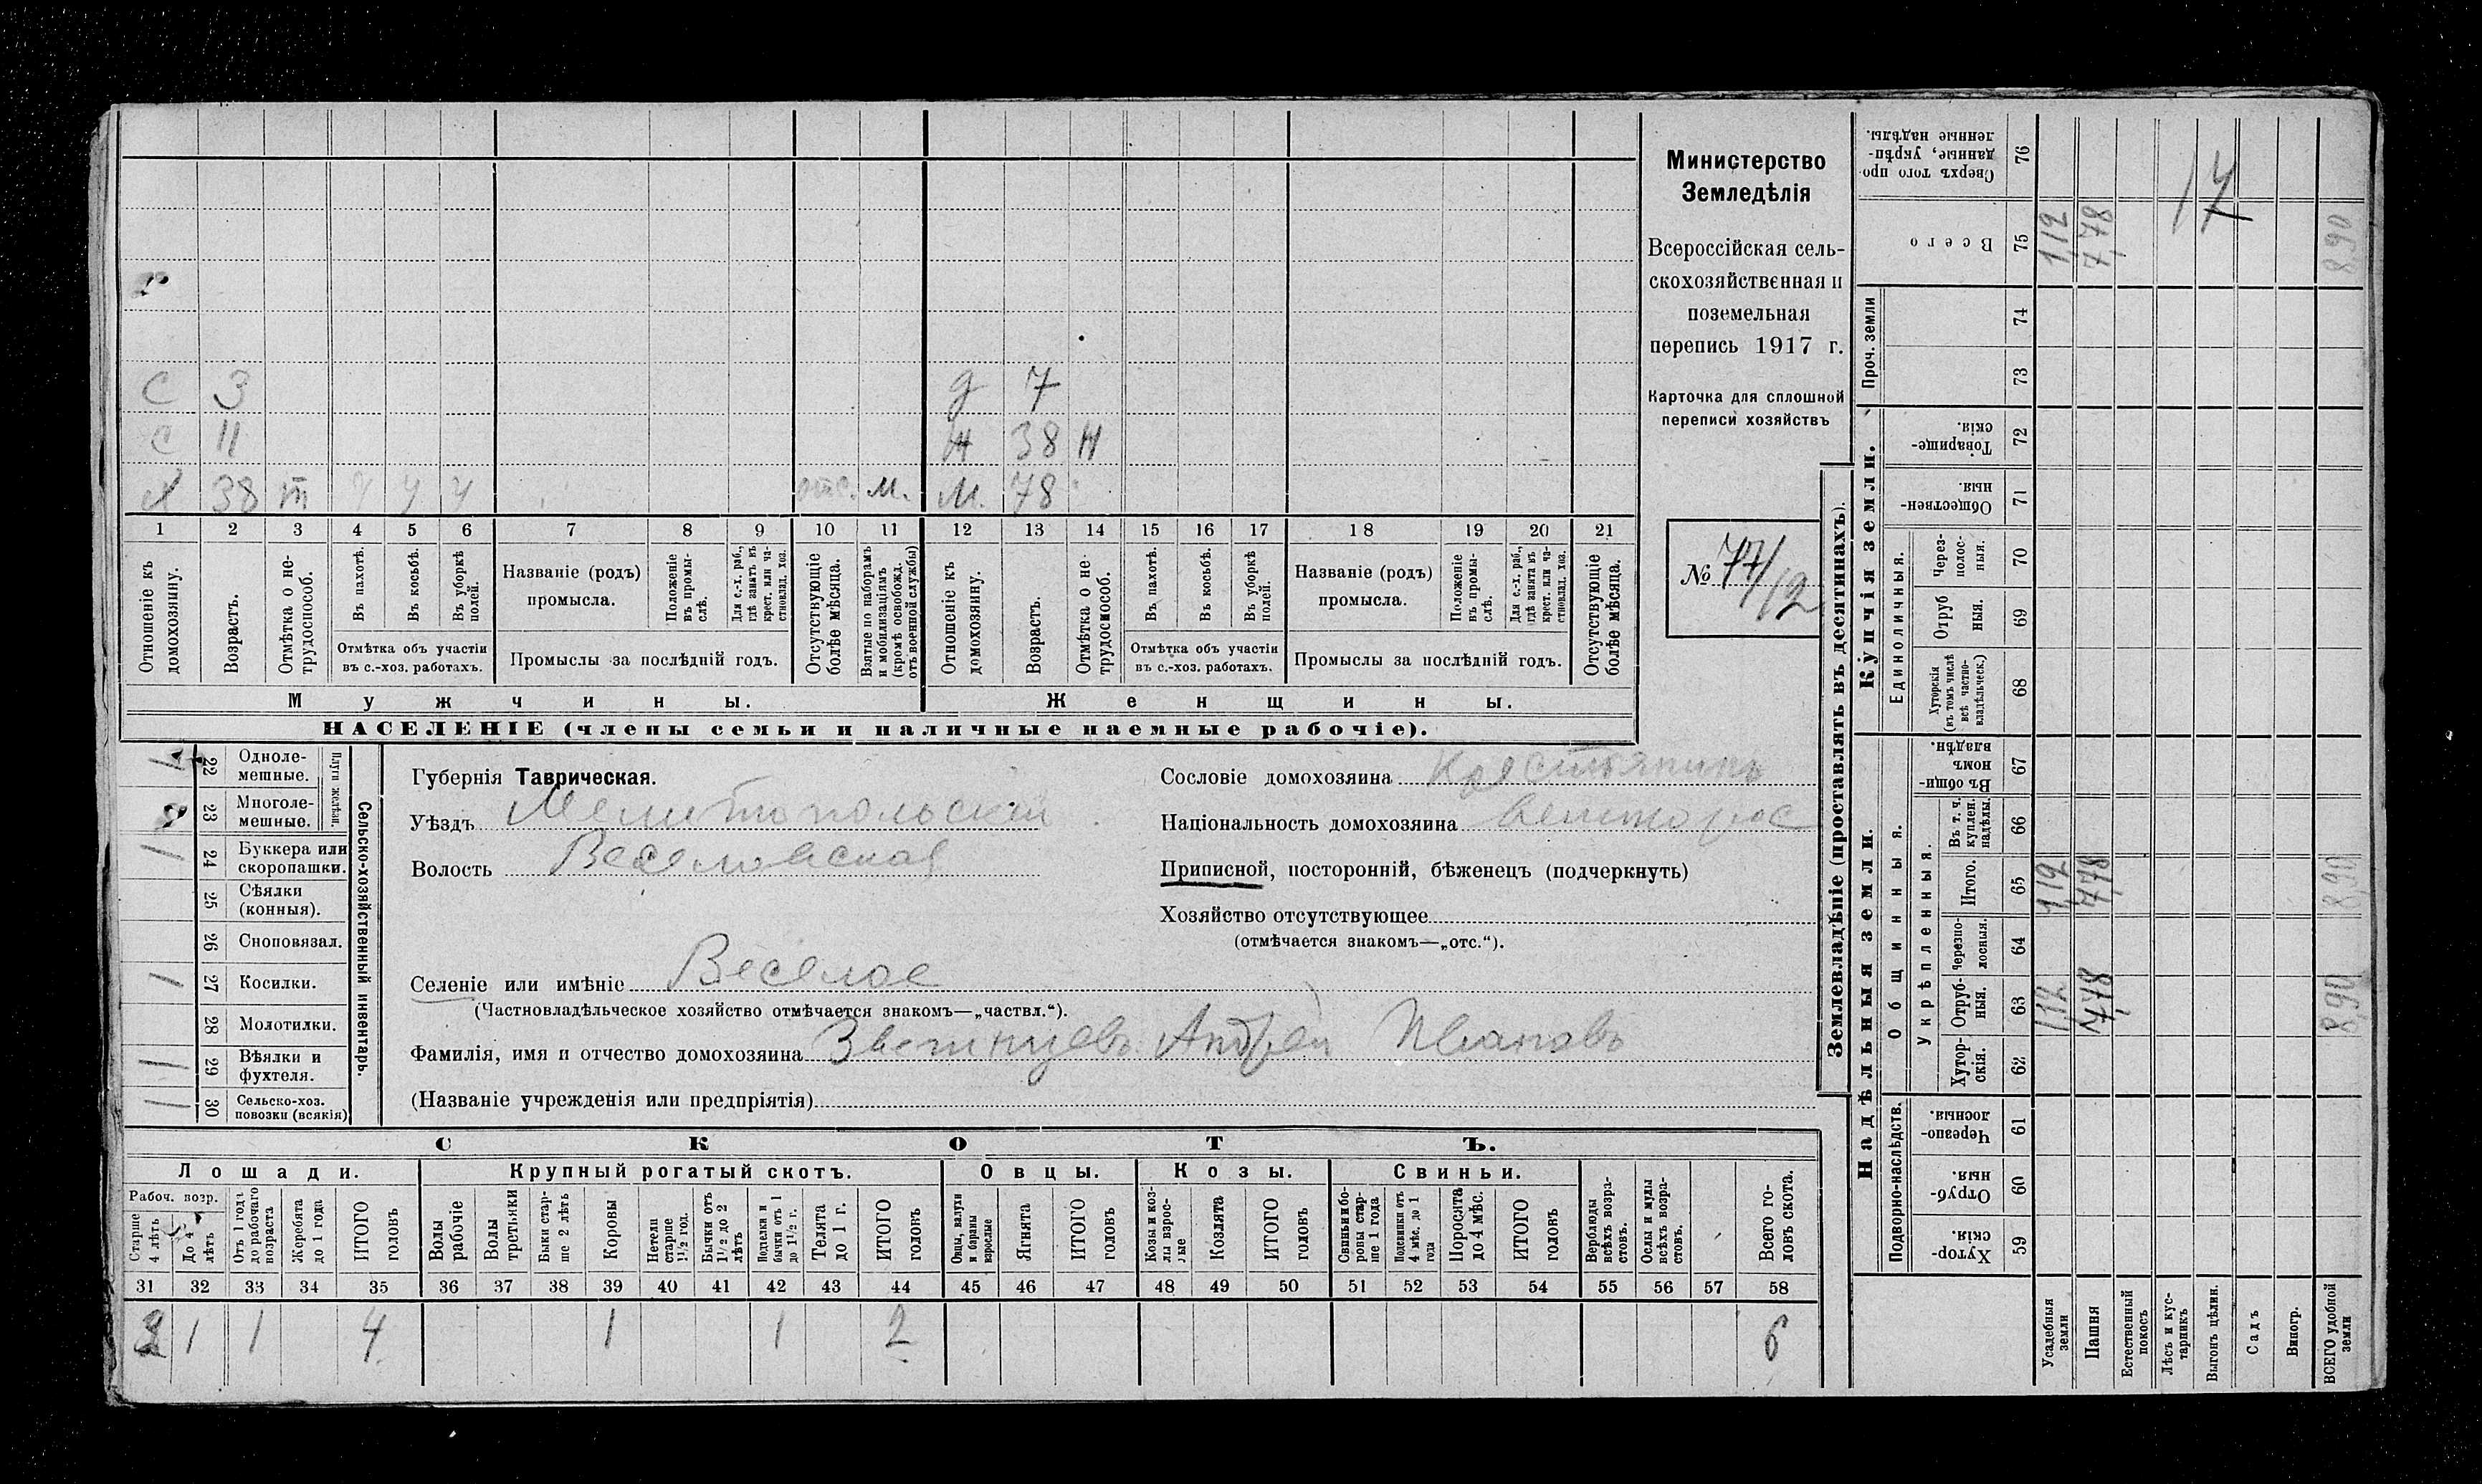 Министерство
Земледѣлія
Всероссійская сель-
скохозяйственная и
поземельная
перепись 1917 г.
Карточка для сплошной
переписи хозяйствъ
№ 77/12
С 3 д 7
С 11 Ж 38 Н
Х 38 т ч ч ч отс. м. М. 78
1 2 3 4 5 6 7 8 9 10 11 12 13 14 15 16 17 18 19 20 21
Отношеніе къ домохозяину.
Возрастъ.
Отмѣтка о не-трудоспособ.
Въ пахотѣ.
Въ косьбѣ.
Въ уборкѣ полей.
Отмѣтка объ участіи
въ с.-хоз. работахъ.
Названіе (родъ)
промысла.
Положеніе въ промы-слѣ.
Для с.-х. раб., гдѣ занятъ въ крест. или ча-стновлад. хоз.
Промыслы за послѣдній годъ.
Отсутствующіе болѣе мѣсяца.
Взятые по наборамъ и мобилизаціямъ (кромѣ освобожд. отъ военной службы)
Отношеніе къ домохозяину.
Возрастъ.
Отмѣтка о не-трудоспособ.
Въ пахотѣ.
Въ косьбѣ.
Въ уборкѣ полей.
Отмѣтка объ участіи
въ с.-хоз. работахъ.
Названіе (родъ)
промысла.
Положеніе въ промы-слѣ.
Для с.-х. раб., гдѣ занятъ въ крест. или ча-стновлад. хоз.
Промыслы за послѣдній годъ.
Отсутствующіе болѣе мѣсяца.
Мужчины. Женщины.
НАСЕЛЕНІЕ (члены семьи и наличные наемные рабочіе).
Сельско-хозяйственный инвентарь.
Плуги желѣзн.
22 Одноле-мешные.
23 Многоле-мешные.
1 24 Буккера или скоропашки.
25 Сѣялки (конныя).
26 Сноповязал.
1 27 Косилки.
28 Молотилки.
1 29 Вѣялки и фухтеля.
1 30 Сельско-хоз. повозки (всякія)
Губернія Таврическая.
Уѣздъ Мелитопольскій
Волость Веселовская
Сословіе домохозяина Крестьянинъ
Національность домохозяина великорос
Приписной, посторонній, бѣженецъ (подчеркнуть)
Хозяйство отсутствующее
(отмѣчается знакомъ—„отс.“).
Селеніе или имѣніе Веселое
(Частновладѣльческое хозяйство отмѣчается знакомъ—„частвл.“).
Фамилія, имя и отчество домохозяина Звегинцевъ Андрей Ивановъ
(Названіе учрежденія или предпріятія)
СКОТЪ.
Лошади. Крупный рогатый скотъ. Овцы. Козы. Свиньи.
Рабоч. возр.
Старше 4 лѣтъ
До 4 лѣтъ
Отъ 1 года до рабочаго возраста
Жеребята до 1 года
ИТОГО головъ
Волы рабочіе
Волы третьяки
Быки стар-ше 2 лѣтъ
Коровы
Нетели старше 1½ год.
Бычки отъ 1½ до 2 лѣтъ
Подтелки и бычки отъ 1 до 1½ г.
Телята до 1 г.
ИТОГО головъ
Овцы, валухи и бараны взрослые
Ягнята
ИТОГО головъ
Козы и коз-лы взрос-лые
Козлята
ИТОГО головъ
Свиньи и бо-ровы стар-ше 1 года
Подсвинки отъ 4 мѣс. до 1 года
Поросята до 4 мѣс.
ИТОГО головъ
Верблюды всѣхъ возра-стовъ.
Ослы и мулы всѣхъ возра-стовъ.
Всего го-ловъ скота.
31 32 33 34 35 36 37 38 39 40 41 42 43 44 45 46 47 48 49 50 51 52 53 54 55 56 57 58
1 1 4 1 1 2 6
Землевладѣніе (проставлять въ десятинахъ).
Сверхъ того про-данные, укрѣп-ленные надѣлы. 76
17
Всего 75 1,12 7,78 8,90
Проч. земли 74
73
Купчія земли.
Товарище-скія. 72
Обществен-ныя. 71
Единоличныя.
Через-полос-ныя. 70
Отруб ныя. 69
Хуторскія (въ томъ числѣ всѣ частно-владѣльческ.) 68
Надѣльныя земли.
Общинныя.
Въ общи-номъ владѣн. 67
Укрѣпленныя.
Въ т. ч. куплен. надѣлы. 66
Итого. 65 1,12 7,78 8,90
Черезпо-лосныя. 64
Отруб-ныя. 63 1,12 7,78 8,90
Хутор-скія. 62
Подворно-наслѣдств.
Черезпо-лосныя. 61
Отруб-ныя. 60
Хутор-скія. 59
Усадебныя земли
Пашня
Естественный покосъ
Лѣсъ и кус-тарникъ
Выгонъ цѣлин.
Садъ
Виногр.
ВСЕГО удобной земли